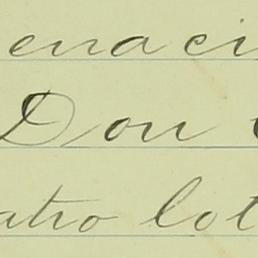 enaci
Don
atro lot